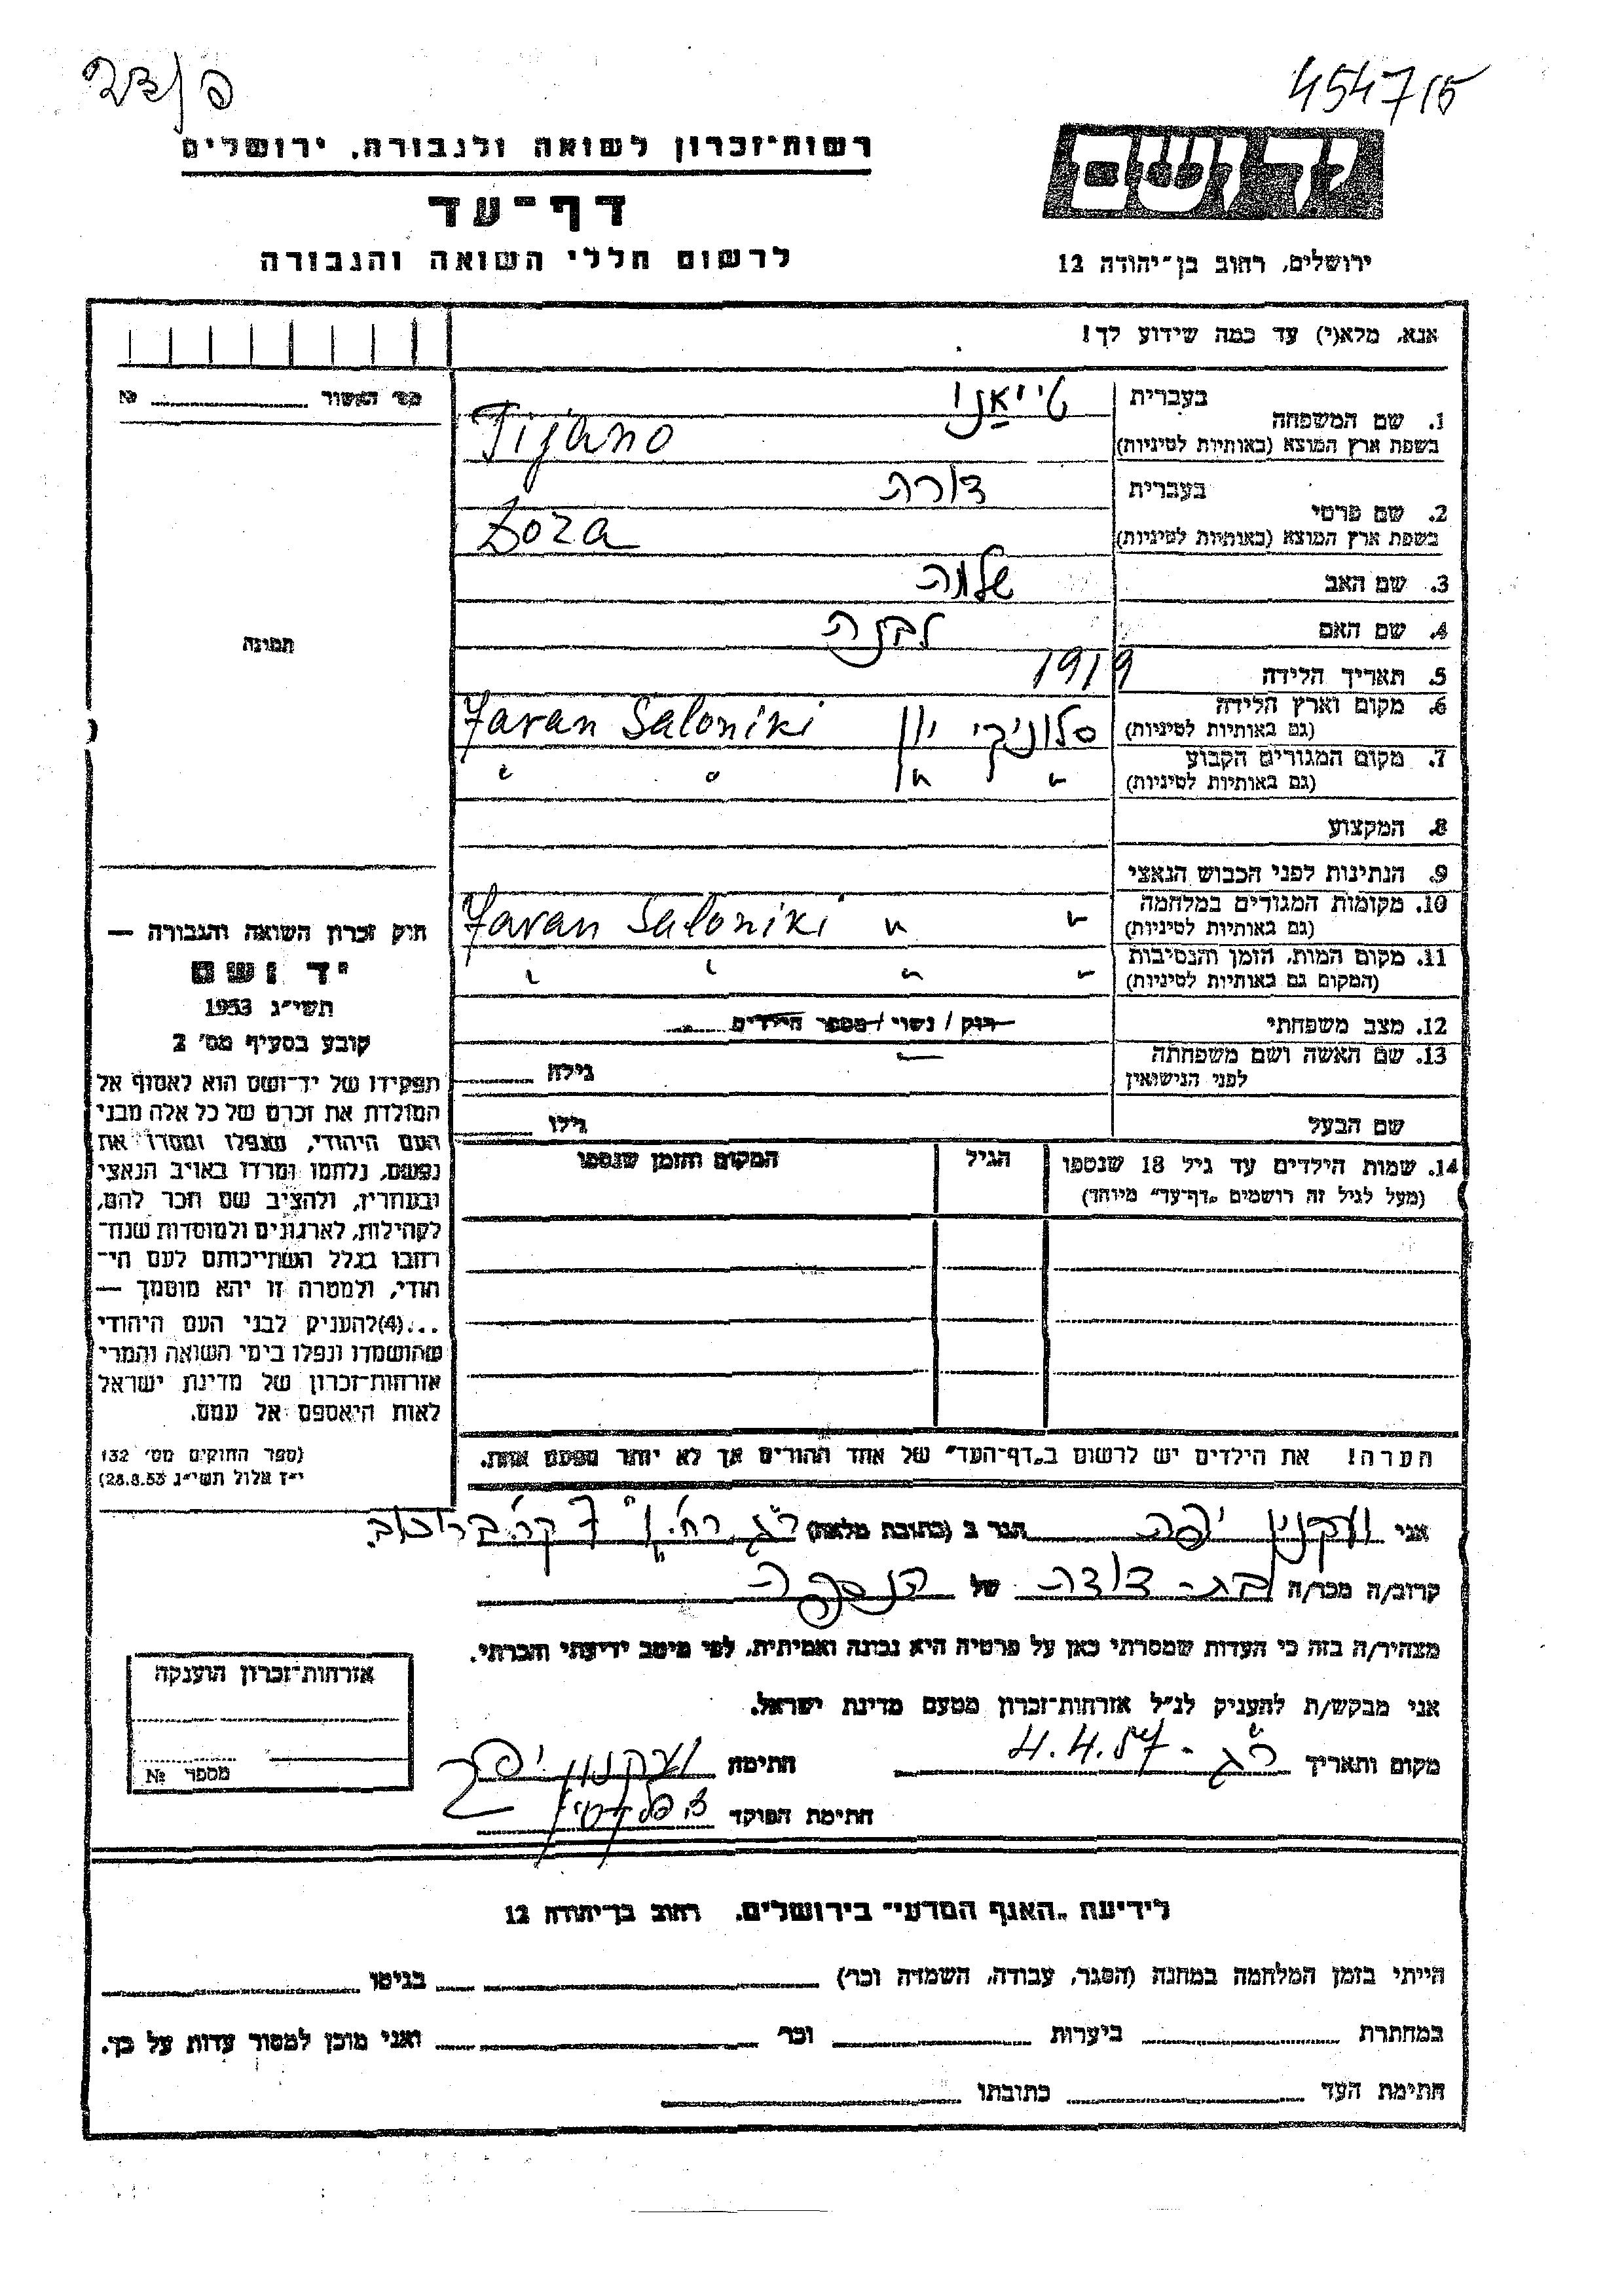 454715
רשות־זכרון לשואה ולגבורה, ירושלים
דף־עד
לרשום חללי השואה והגבורה
ירושלים, רחוב בן־יהודה 12
אנא, מלא(י) עד כמה שידוע לך!
מס' האשור № 
1. שם המשפחה
בעברית טייאנו
בשפת ארץ המוצא (באותיות לטיניות) Tijano
2. שם פרטי
בעברית דורה
בשפת ארץ המוצא (באותיות לטיניות) Dora
3. שם האב שלמה
4. שם האם לבנה
5. תאריך הלידה 1919
6. מקום וארץ הלידה סלוניקי יון Javan Saloniki
(גם באותיות לטיניות)
7. מקום המגורים הקבוע " " " "
(גם באותיות לטיניות)
8. המקצוע
9. הנתינות לפני הכבוש הנאצי
10. מקומות המגורים במלחמה " " Javan Saloniki
(גם באותיות לטיניות)
11. מקום המות, הזמן והנסיבות " " " "
(המקום גם באותיות לטיניות)
12. מצב משפחתי רוק / נשוי / מספר הילדים
13. שם האשה ושם משפחתה
לפני הנישואין גילה
שם הבעל גילו
14. שמות הילדים עד גיל 18 שנספו הגיל המקום והזמן שנספו
(מעל לגיל זה רושמים „דף־עד" מיוחד)
הערה! את הילדים יש לרשום ב„דף־העד" של אחד ההורים אך לא יותר מפעם אחת.
תמונה
חוק זכרון השואה והגבורה —
יד ושם
תשי"ג 1953
קובע בסעיף מס' 2
תפקידו של יד־ושם הוא לאסוף אל
המולדת את זכרם של כל אלה מבני
העם היהודי, שנפלו ומסרו את
נפשם, נלחמו ומרדו באויב הנאצי
ובעוזריו, ולהציב שם וזכר להם,
לקהילות, לארגונים ולמוסדות שנח־
רבו בגלל השתייכותם לעם הי־
הודי, ולמטרה זו יהא מוסמך —
...(4)להעניק לבני העם היהודי
שהושמדו ונפלו בימי השואה והמרי
אזרחות־זכרון של מדינת ישראל
לאות היאספם אל עמם.
(ספר החוקים מס' 132
י"ז אלול תשי"ג 28.8.53)
אני ועקנין יפה הגר ב (כתובת מלאה) ר"ג
קרוב/ה מכר/ה בת־דודה של הנספה
מצהיר/ה בזה כי העדות שמסרתי כאן על פרטיה היא נכונה ואמיתית, לפי מיטב ידיעתי והכרתי.
אני מבקש/ת להעניק לנ"ל אזרחות־זכרון מטעם מדינת ישראל.
מקום ותאריך ר"ג - 4.4.57 חתימה ועקנין יפה
חתימת הפוקד
אזרחות־זכרון הוענקה
מספר №
לידיעת „האגף המדעי" בירושלים, רחוב בן־יהודה 12
הייתי בזמן המלחמה במחנה (הסגר, עבודה, השמדה וכו') בגיטו
במחתרת ביערות וכו' ואני מוכן למסור עדות על כך.
חתימת העד כתובתו